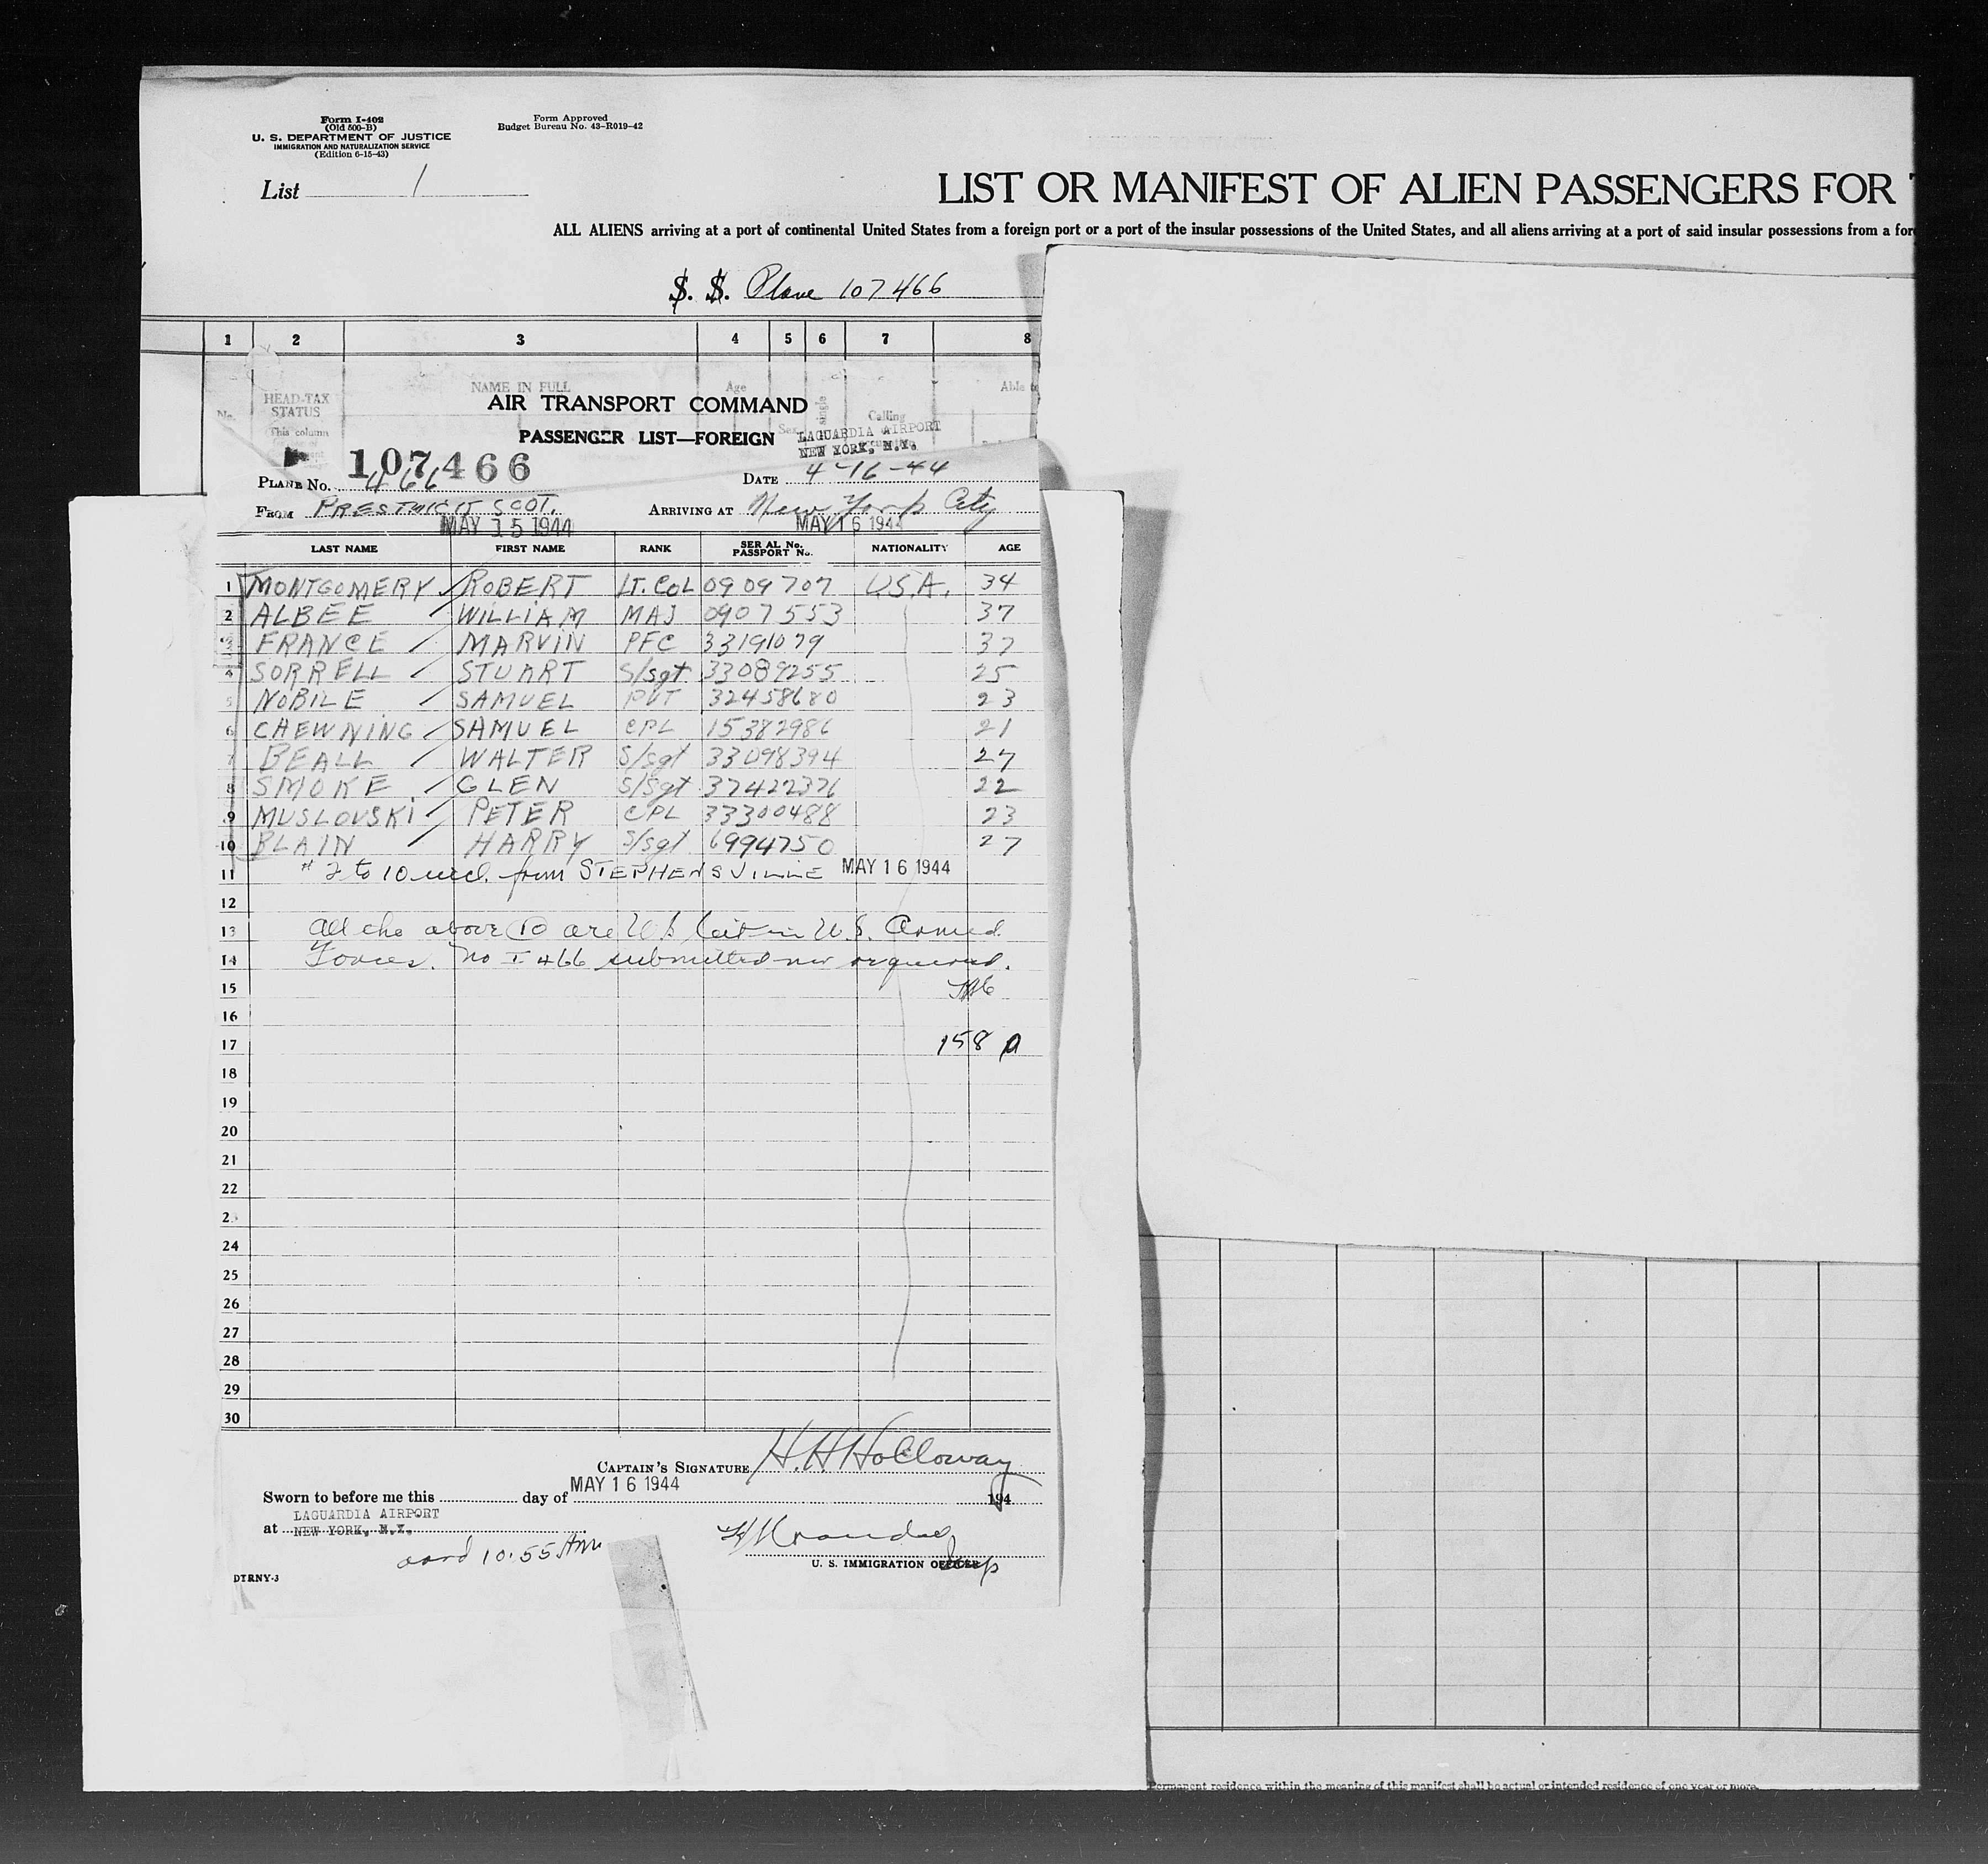 Form I-402
(Old 500-B)
U. S. DEPARTMENT OF JUSTICE
IMMIGRATION AND NATURALIZATION SERVICE
(Edition 6-15-43)
Form Approved
Budget Bureau No. 43-R019-42
List 1
LIST OR MANIFEST OF ALIEN PASSENGERS FOR
ALL ALIENS arriving at a port of continental United States from a foreign port or a port of the insular possessions of the United States, and all aliens arriving at a port of said insular possessions from a
S. S. Plane 107466
1 2 3 4 5 6 7 8
No. HEAD-TAX STATUS NAME IN FULL Age Sex Calling Able
This column
AIR TRANSPORT COMMAND
PASSENGER LIST—FOREIGN
LAGUARDIA AIRPORT
NEW YORK, N.Y.
107466
PLANE No. 466 DATE 4-16-44
FROM PRESTWICK SCOT. ARRIVING AT New York City
MAY 15 1944 MAY 16 1944
LAST NAME FIRST NAME RANK SERIAL No. PASSPORT No. NATIONALITY AGE
1 MONTGOMERY ROBERT LT. COL 0909707 U.S.A. 34
2 ALBEE WILLIAM MAJ 0907553 37
3 FRANCE MARVIN PFC 33191079 37
4 SORRELL STUART S/sgt 33089255 25
5 NOBILE SAMUEL PVT 32458680 23
6 CHEWNING SAMUEL CPL 15382986 21
7 BEALL WALTER S/sgt 33098394 27
8 SMOKE GLEN S/Sgt 37422376 22
9 MUSLOVSKI PETER CPL 33300488 23
10 BLAIN HARRY S/sgt 6994750 27
11 # 2 to 10 incl. from STEPHENSVILLE MAY 16 1944
12
13 All the above 10 are U.S. Cit in U.S. Armed
14 Forces. No I 466 submitted nor required.
15
16
17 158
18
19
20
21
22
2
24
25
26
27
28
29
30
CAPTAIN'S SIGNATURE H. H Holloway
Sworn to before me this day of MAY 16 1944 194
at LAGUARDIA AIRPORT
NEW YORK, N.Y.
10:55 AM
U. S. IMMIGRATION OFFICER
DTRNY-3
Permanent residence within the meaning of this manifest shall be actual or intended residence of one year or more.